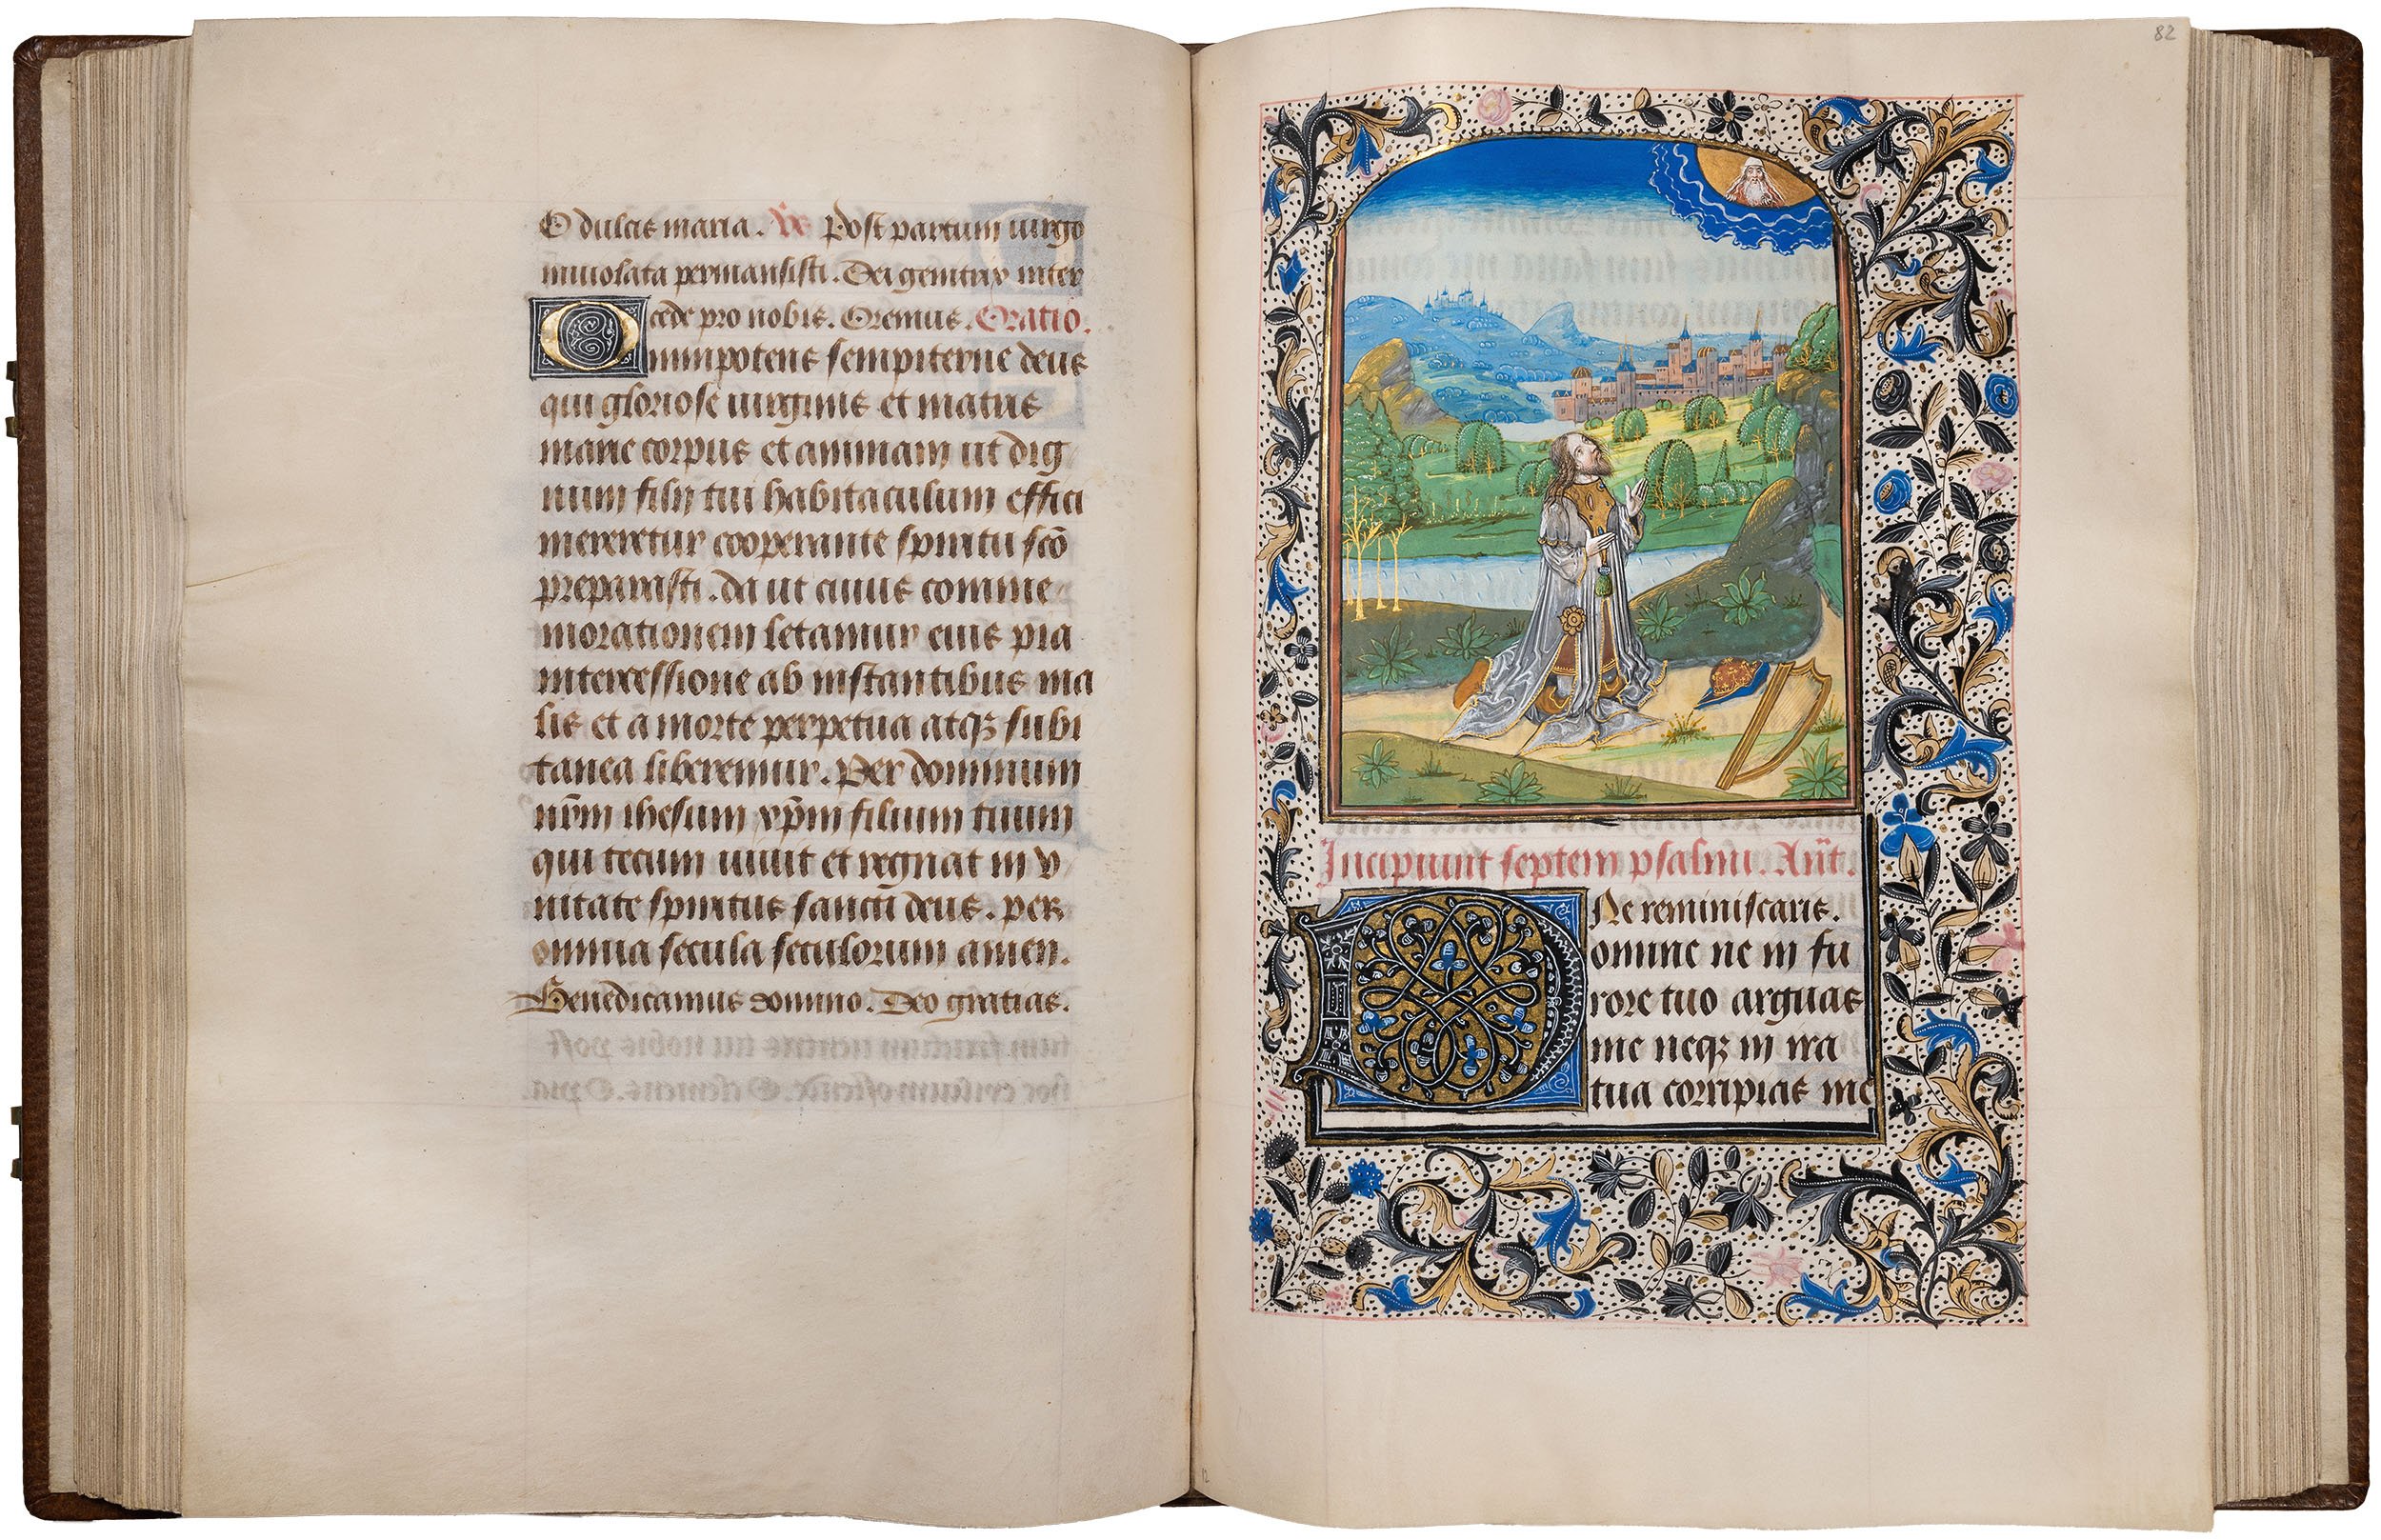 O dulcis maria. V Post partum uirgo
inuiolata permansisti. Dei genitrix inter
cede pro nobis. Oremus. Oratio.
Omnipotens sempiterne deus
qui gloriose uirginis et matris
marie corpus et animam ut dig
num filij tui habitaculum effici
mereretur cooperante spiritu scō
preparasti. da ut cuius comme
moratione letamur eius pia
intercessione ab instantibus ma
lis et a morte perpetua atqꝫ subi
tanea liberemur. Per dominum
nr̄m ihesum xp̄m filium tuum
qui tecum uiuit et regnat in v
nitate spiritus sancti deus. per
omnia secula seculorum amen.
Benedicamus domino. Deo gratias.
82
Incipiunt septem psalmi. Añt.
Ne reminiscaris.
Domine ne in fu
rore tuo arguas
me neqꝫ in ira
tua corripias me
12